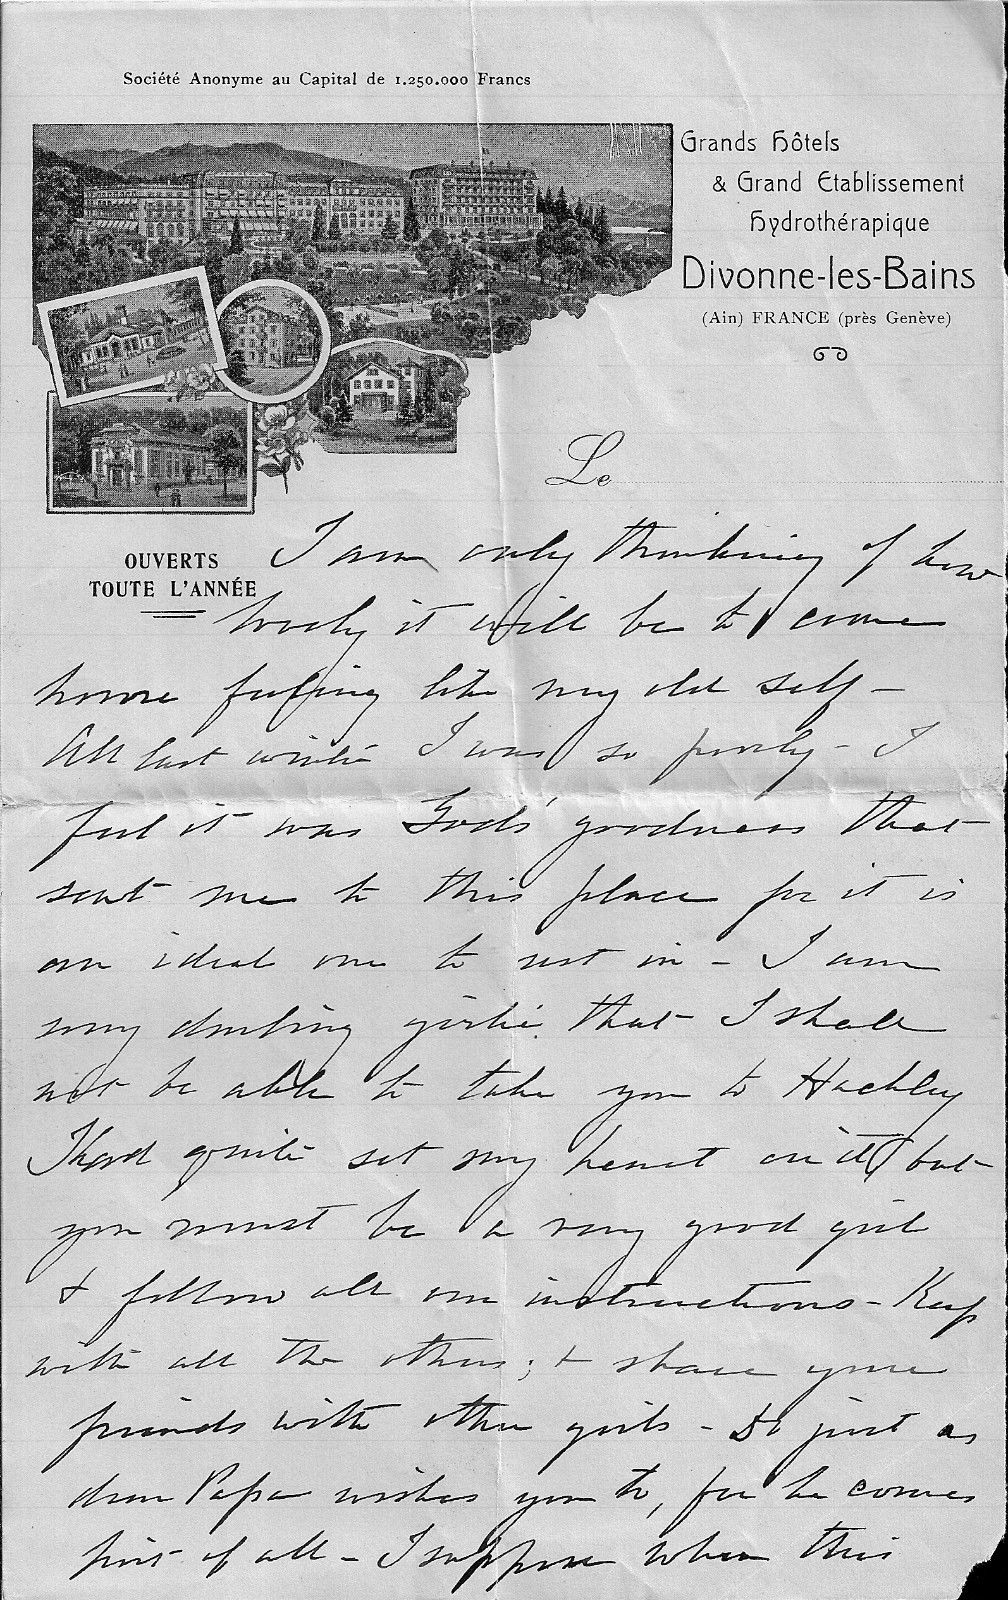 Société Anonyme au Capital de 1.250.000 Francs
Grands Hôtels
& Grand Etablissement
Hydrothérapique
Divonne-les-Bains
(Ain) FRANCE (près Genève)
Le
OUVERTS
TOUTE L'ANNÉE
I am only thinking of how
lovely it will be to come
home feeling like my old self –
All last winter I was so poorly – I
feel it was God's goodness that
sent me to this place for it is
an ideal one to rest in – I am
my darling girlie that I shall
not be able to take you to Hackley
I had quite set my heart on it but
you must be a very good girl
& follow all our instructions – Keep
with all the others; & share your
friends with other girls – Do just as
dear Papa wishes you to, for he comes
first of all – I suppose when this